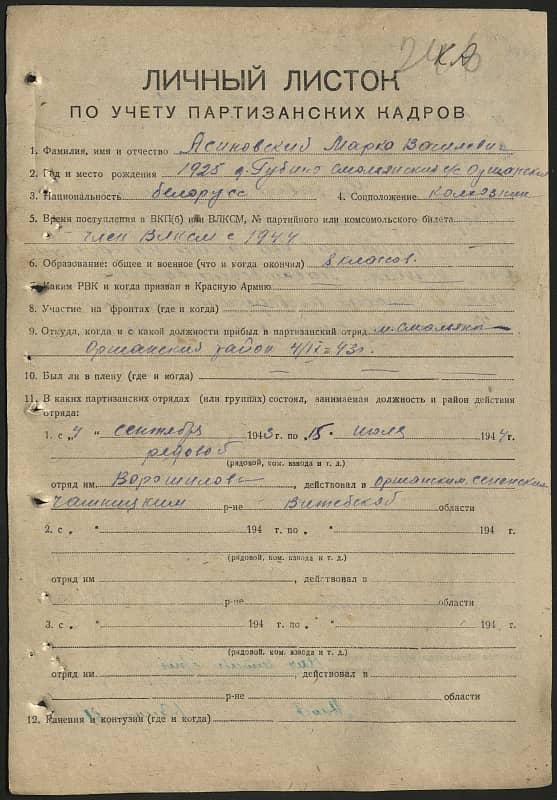 ЛИЧНЫЙ ЛИСТОК
ПО УЧЕТУ ПАРТИЗАНСКИХ КАДРОВ
1. Фамилия, имя и отчество Асиновский Марко Васильевич
2. Год и место рождения 1925 д. Губино Смольянский с/с Оршанский
3. Национальность белорусс 4. Соцположение колхозник
5. Время поступления в ВКП(б) или ВЛКСМ, № партийного или комсомольского билета
член ВЛКСМ с 1944
6. Образование: общее и военное (что и когда окончил) 8 класов.
7. Каким РВК и когда призван в Красную Армию
8. Участие на фронтах (где и когда)
9. Откуда, когда и с какой должности прибыл в партизанский отряд м. Смольяны
Оршанский район 4/IX-43г.
10. Был ли в плену (где и когда)
11. В каких партизанских отрядах (или группах) состоял, занимаемая должность и район действия
отряда:
1. с „4 “ сентября 1943 г. по „15 “ июля 1944 г.
рядовой
(рядовой, ком. взвода и т. д.)
отряд им Ворошилова, действовал в Оршанским, Сененским
Чашницким р-не Витебской области
2. с „ “ 194 г. по „ “ 194 г.
(рядовой, ком. взвода и т. д.)
отряд им , действовал в
р-не области
3. с „ “ 194 г. по „ “ 194 г.
(рядовой, ком. взвода и т. д.)
отряд им , действовал в
р-не области
12. Ранения и контузии (где и когда)